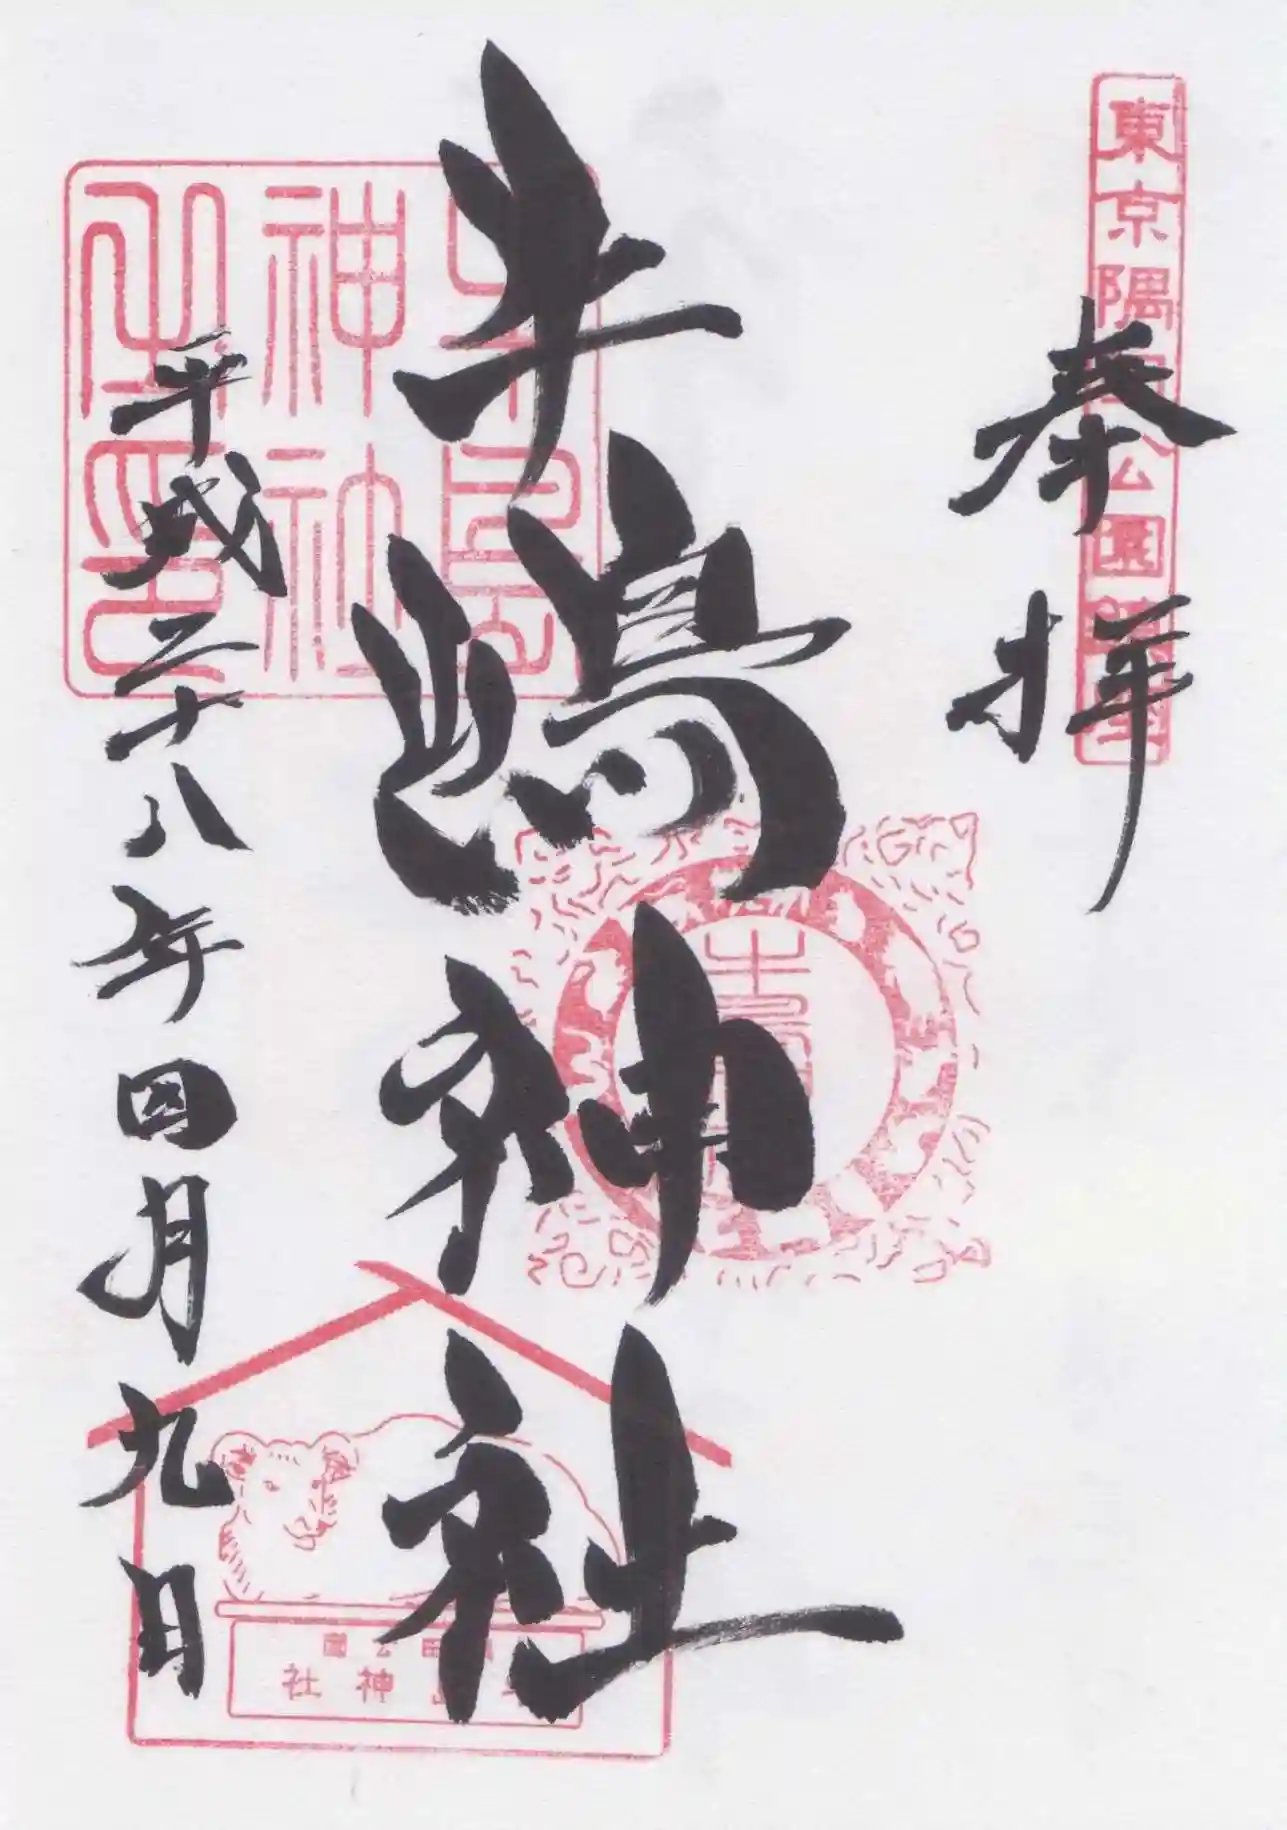 東京隅田公園鎮座
奉拝
牛嶋神社
牛嶋神社之印
平成二十八年四月九日
神社